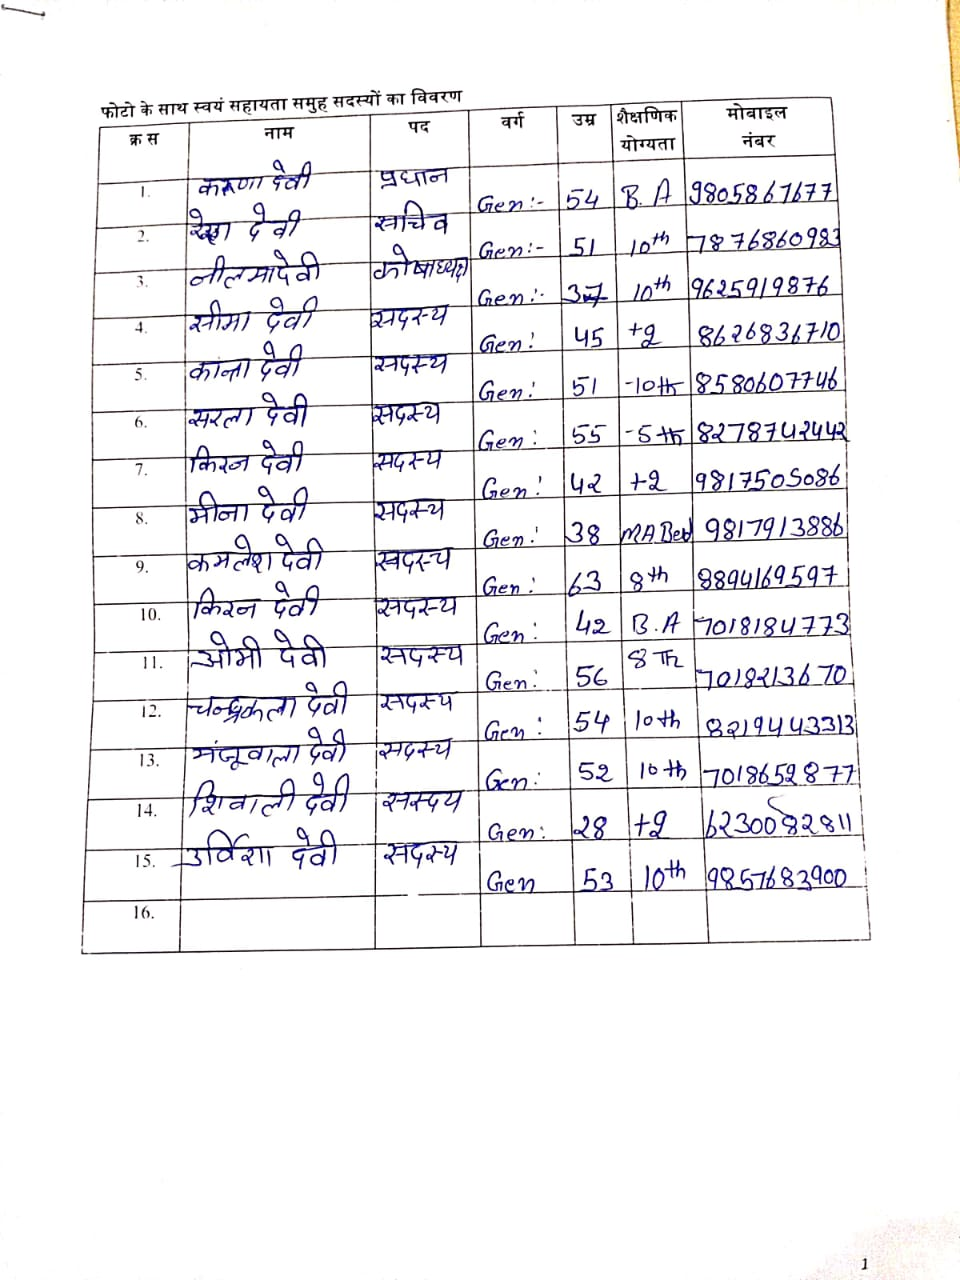 फोटो के साथ स्वयं सहायता समुह सदस्यों का विवरण
क्र स नाम पद वर्ग उम्र शैक्षणिक योग्यता मोबाइल नंबर
1. करुणा देवी प्रधान Gen:- 54 B.A 9805867677
2. रेखा देवी सचिव Gen:- 51 10th 7876860983
3. नीलमादेवी कोषाध्यक्ष Gen:- 37 10th 9625919876
4. सीमा देवी सदस्य Gen: 45 +2 8626836710
5. कांता देवी सदस्य Gen: 51 -10th 8580607746
6. सरला देवी सदस्य Gen: 55 -5th 8278742442
7. किरन देवी सदस्य Gen: 42 +2 9817505086
8. मीना देवी सदस्य Gen: 38 MA Bed 9817913886
9. कमलेश देवी सदस्य Gen: 63 8th 8894169597
10. किरन देवी सदस्य Gen: 42 B.A 7018184773
11. ओमी देवी सदस्य Gen: 56 8Th 7018213670
12. चन्द्रकला देवी सदस्य Gen: 54 10th 8219443313
13. मंजूवाला देवी सदस्य Gen: 52 10th 7018652877
14. शिवाली देवी सस्दय Gen: 28 +2 6230082811
15. उर्विशा देवी सदस्य Gen 53 10th 9857683900
16.
1